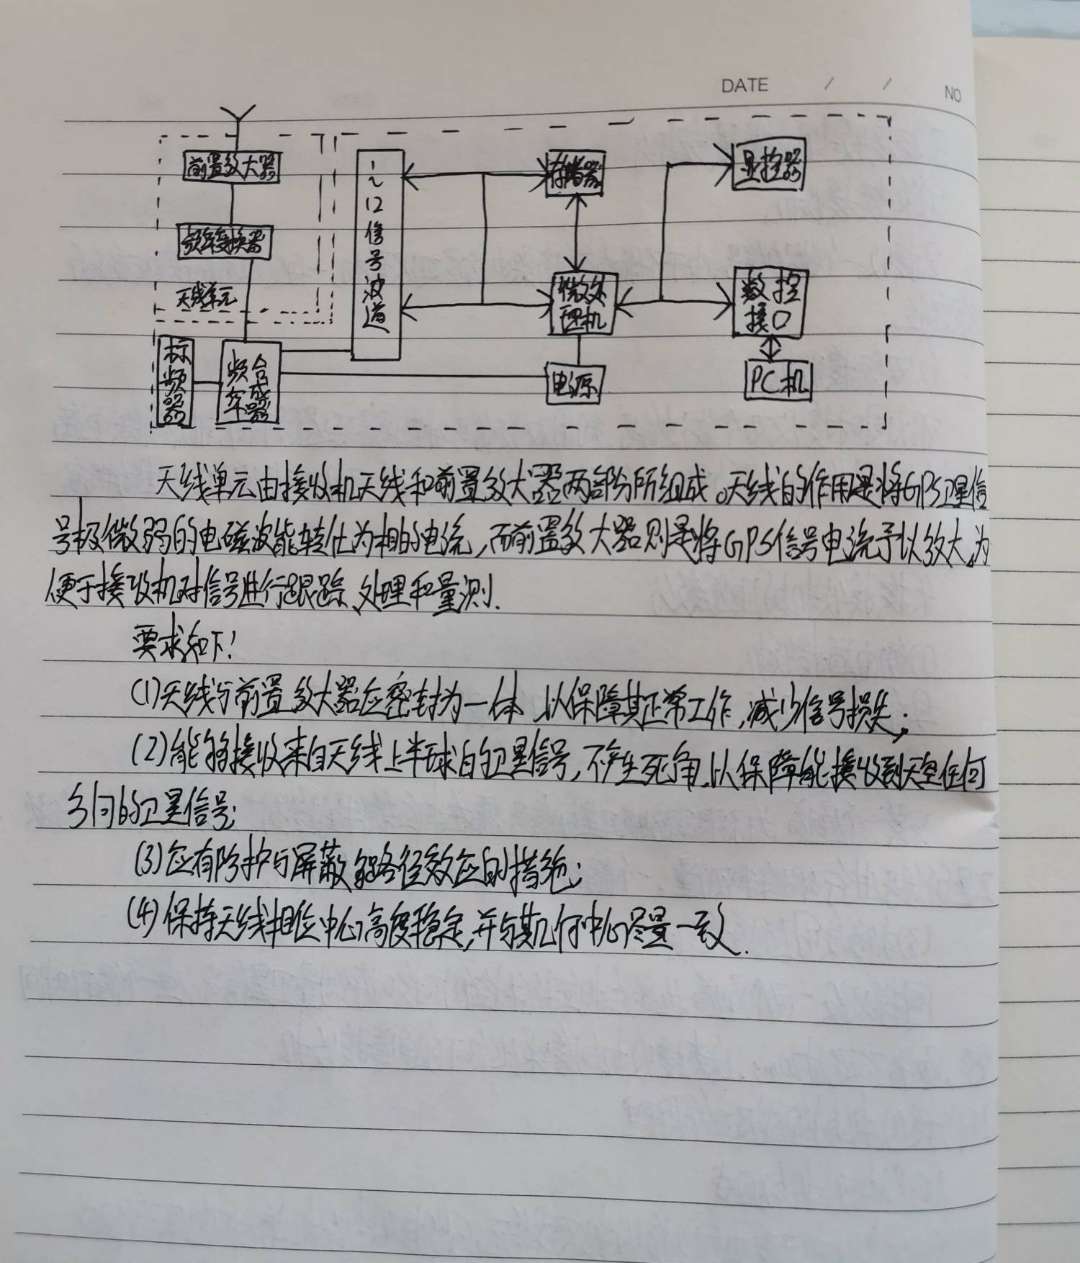 DATE / / NO
前置放大器
频率变换器
天线单元
标频器
频率合成器
1~12信号波道
存储器
微处理机
电源
显控器
数控接口
PC机
天线单元由接收机天线和前置放大器两部分所组成。天线的作用是将GPS卫星信
号极微弱的电磁波能转化为相的电流,而前置放大器则是将GPS信号电流予以放大,为
便于接收机对信号进行跟踪、处理和量测.
要求如下:
(1)天线与前置放大器应密封为一体,以保障其正常工作,减少信号损失;
(2)能够接收来自天线上半球的卫星信号,不产生死角,以保障能接收到天空任何
方向的卫星信号;
(3)应有防护与屏蔽多路径效应的措施;
(4)保持天线相位中心高度稳定,并与其几何中心尽量一致.